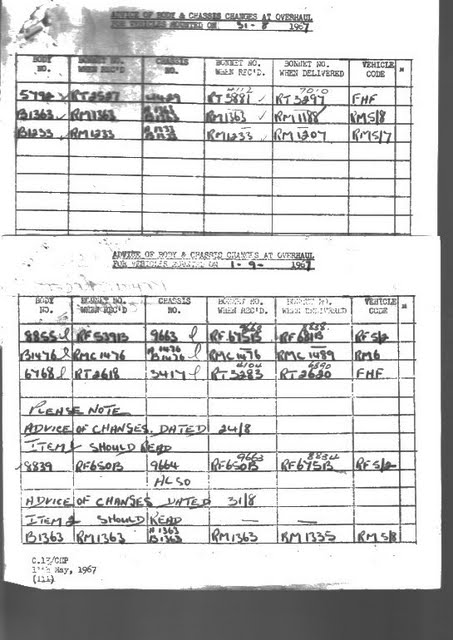 ADVICE OF BODY & CHASSIS CHANGES AT OVERHAUL
FOR VEHICLES MOUNTED ON 31-8 1967
BODY NO. BONNET NO. WHEN REC'D. CHASSIS NO. BONNET NO. WHEN REC'D. BONNET NO. WHEN DELIVERED VEHICLE CODE
4112 7010
5792 RT2527 RT3881 RT3297 FHF
B1363 RM1363 B1363 RM1363 RM1188 RM5/8
B1233 RM1233 B1233 RM1233 RM1207 RM5/7
ADVICE OF BODY & CHASSIS CHANGES AT OVERHAUL
FOR VEHICLES MOUNTED ON 1-9- 1967
BODY NO. BONNET NO. WHEN REC'D. CHASSIS NO. BONNET NO. WHEN REC'D. BONNET NO. WHEN DELIVERED VEHICLE CODE
8855 RF539B 9663 RF675B RF681B RF5/2
B1476 RMC1476 B1476 RMC1476 RMC1489 RM6
6768 RT2618 3417 RT3283 RT2620 FHF
PLEASE NOTE
ADVICE OF CHANGES DATED 24/8
ITEM SHOULD READ
9663 8834
8839 RF650B 9664 RF650B RF675B RF5/2
ALSO
ADVICE OF CHANGES DATED 31/8
ITEM 2 SHOULD READ — —
B1363 RM1363 B1363 RM1363 RM1335 RM5/8
May, 1967
(111)